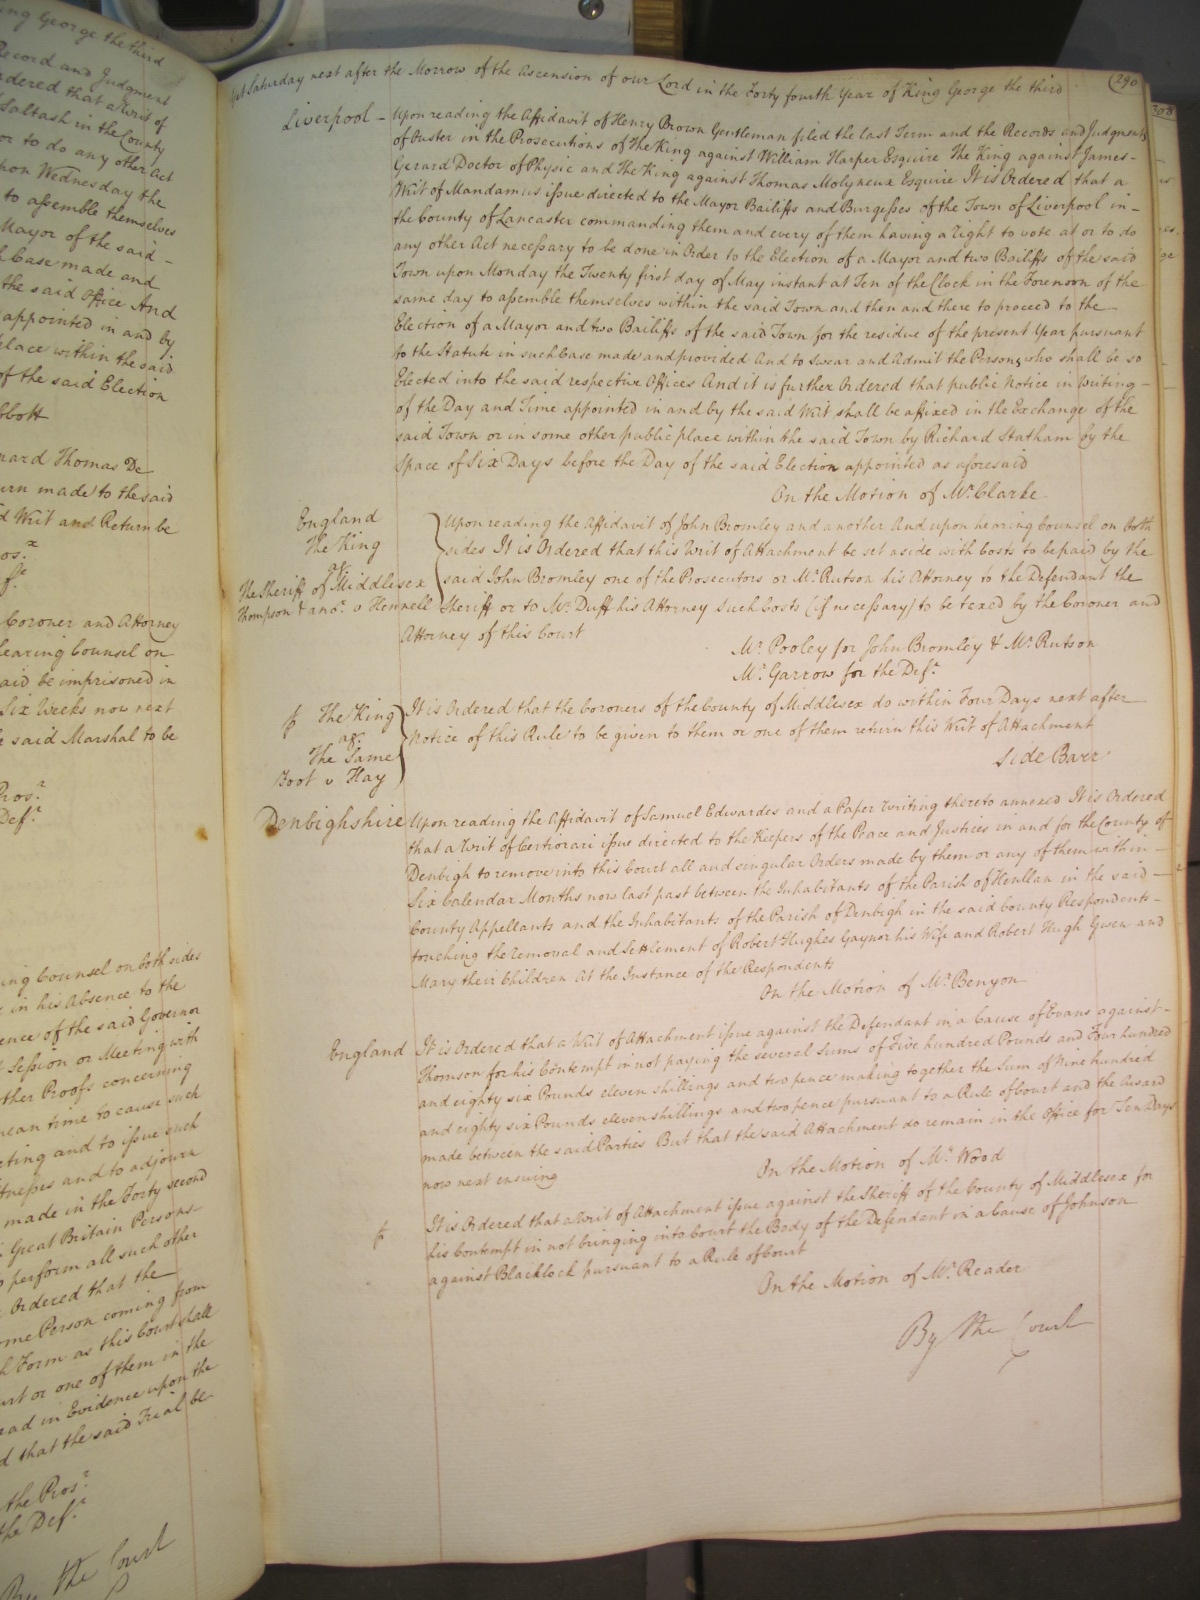 ing George the third
Record and Judgment
rdered that a Writ of
Saltash in the County
or to do any other Act
upon Wednesday the
to assemble themselves
Mayor of the said -
h Case made and
the said Office And
appointed in and by
place within the said
of the said Election
bbott
nard Thomas De
urn made to the said
d Writ and Return be
Coroner and Attorney
hearing Counsel on
aid be imprisoned in
Six Weeks now next
e said Marshal to be
Pros.r
Def.t
ing Counsel on both sides
in his Absence to the
ence of the said Governor
Session or Meeting with
ther Proofs concerning
mean time to cause such
eting and to issue such
tnesses and to adjourn
made in the Forty second
Great Britain Persons
perform all such other
Ordered that the
ome Person coming from
h Form as this Court shall
urt or one of them in the
ead in Evidence upon the
d that the said Trial be
the Pros.r
the Def.t
By the Court
Saturday next after the Morrow of the Ascension of our Lord in the Forty fourth Year of King George the third
290
308
Liverpool - Upon reading the Affidavit of Henry Brown Gentleman filed the last Term and the Records and Judgments
of Ouster in the Prosecutions of The King against William Harper Esquire The King against James -
Gerard Doctor of Physic and The King against Thomas Molyneux Esquire It is Ordered that a
Writ of Mandamus issue directed to the Mayor Bailiffs and Burgesses of the Town of Liverpool in -
the County of Lancaster commanding them and every of them having a right to vote at or to do
any other Act necessary to be done in Order to the Election of a Mayor and two Bailiffs of the said
Town upon Monday the Twenty first day of May instant at Ten of the Clock in the Forenoon of the
same day to assemble themselves within the said Town and then and there to proceed to the
Election of a Mayor and two Bailiffs of the said Town for the residue of the present Year pursuant
to the Statute in such Case made and provided And to swear and Admit the Persons who shall be so
Elected into the said respective Offices And it is further Ordered that public Notice in Writing -
of the Day and Time appointed in and by the said Writ shall be affixed in the Exchange of the
said Town or in some other public place within the said Town by Richard Statham by the
Space of Six Days before the Day of the said Election appointed as aforesaid
On the Motion of Mr. Clarke
England
The King
agt.
The Sheriff of Middlesex
Thompson & anor. v Hennell
Upon reading the Affidavit of John Bromley and another And upon hearing Counsel on both
sides It is Ordered that this Writ of Attachment be set aside with Costs to be paid by the
said John Bromley one of the Prosecutors or Mr. Rutson his Attorney to the Defendant the
Sheriff or to Mr. Duff his Attorney such Costs (if necessary) to be taxed by the Coroner and
Attorney of this Court
Mr. Pooley for John Bromley & Mr. Rutson
Mr. Garrow for the Def.t
The King
agt.
The Same
Boot v Hay
It is Ordered that the Coroners of the County of Middlesex do within Four Days next after
Notice of this Rule to be given to them or one of them return this Writ of Attachment
Side Barr
Denbighshire Upon reading the Affidavit of Samuel Edwardes and a Paper Writing thereto annexed It is Ordered
that a Writ of Certiorari issue directed to the Keepers of the Peace and Justices in and for the County of
Denbigh to remove into this Court all and singular Orders made by them or any of them within -
Six Calendar Months now last past between the Inhabitants of the Parish of Henllan in the said -
County Appellants and the Inhabitants of the Parish of Denbigh in the said County Respondents -
touching the removal and Settlement of Robert Hughes Gaynor his Wife and Robert Hugh Gwen and
Mary their Children At the Instance of the Respondents
On the Motion of Mr. Benyon
England It is Ordered that a Writ of Attachment issue against the Defendant in a Cause of Evans against -
Thomson for his Contempt in not paying the several Sums of Five hundred Pounds and Four hundred
and eighty six Pounds eleven shillings and two pence making together the Sum of Nine hundred
and eighty six Pounds eleven shillings and two pence pursuant to a Rule of Court and the Award
made between the said Parties But that the said Attachment do remain in the Office for Ten Days
now next ensuing
On the Motion of Mr. Wood
It is Ordered that a Writ of Attachment issue against the Sheriff of the County of Middlesex for
his Contempt in not bringing into Court the Body of the Defendant in a Cause of Johnson
against Blacklock pursuant to a Rule of Court
On the Motion of Mr. Reader
By the Court